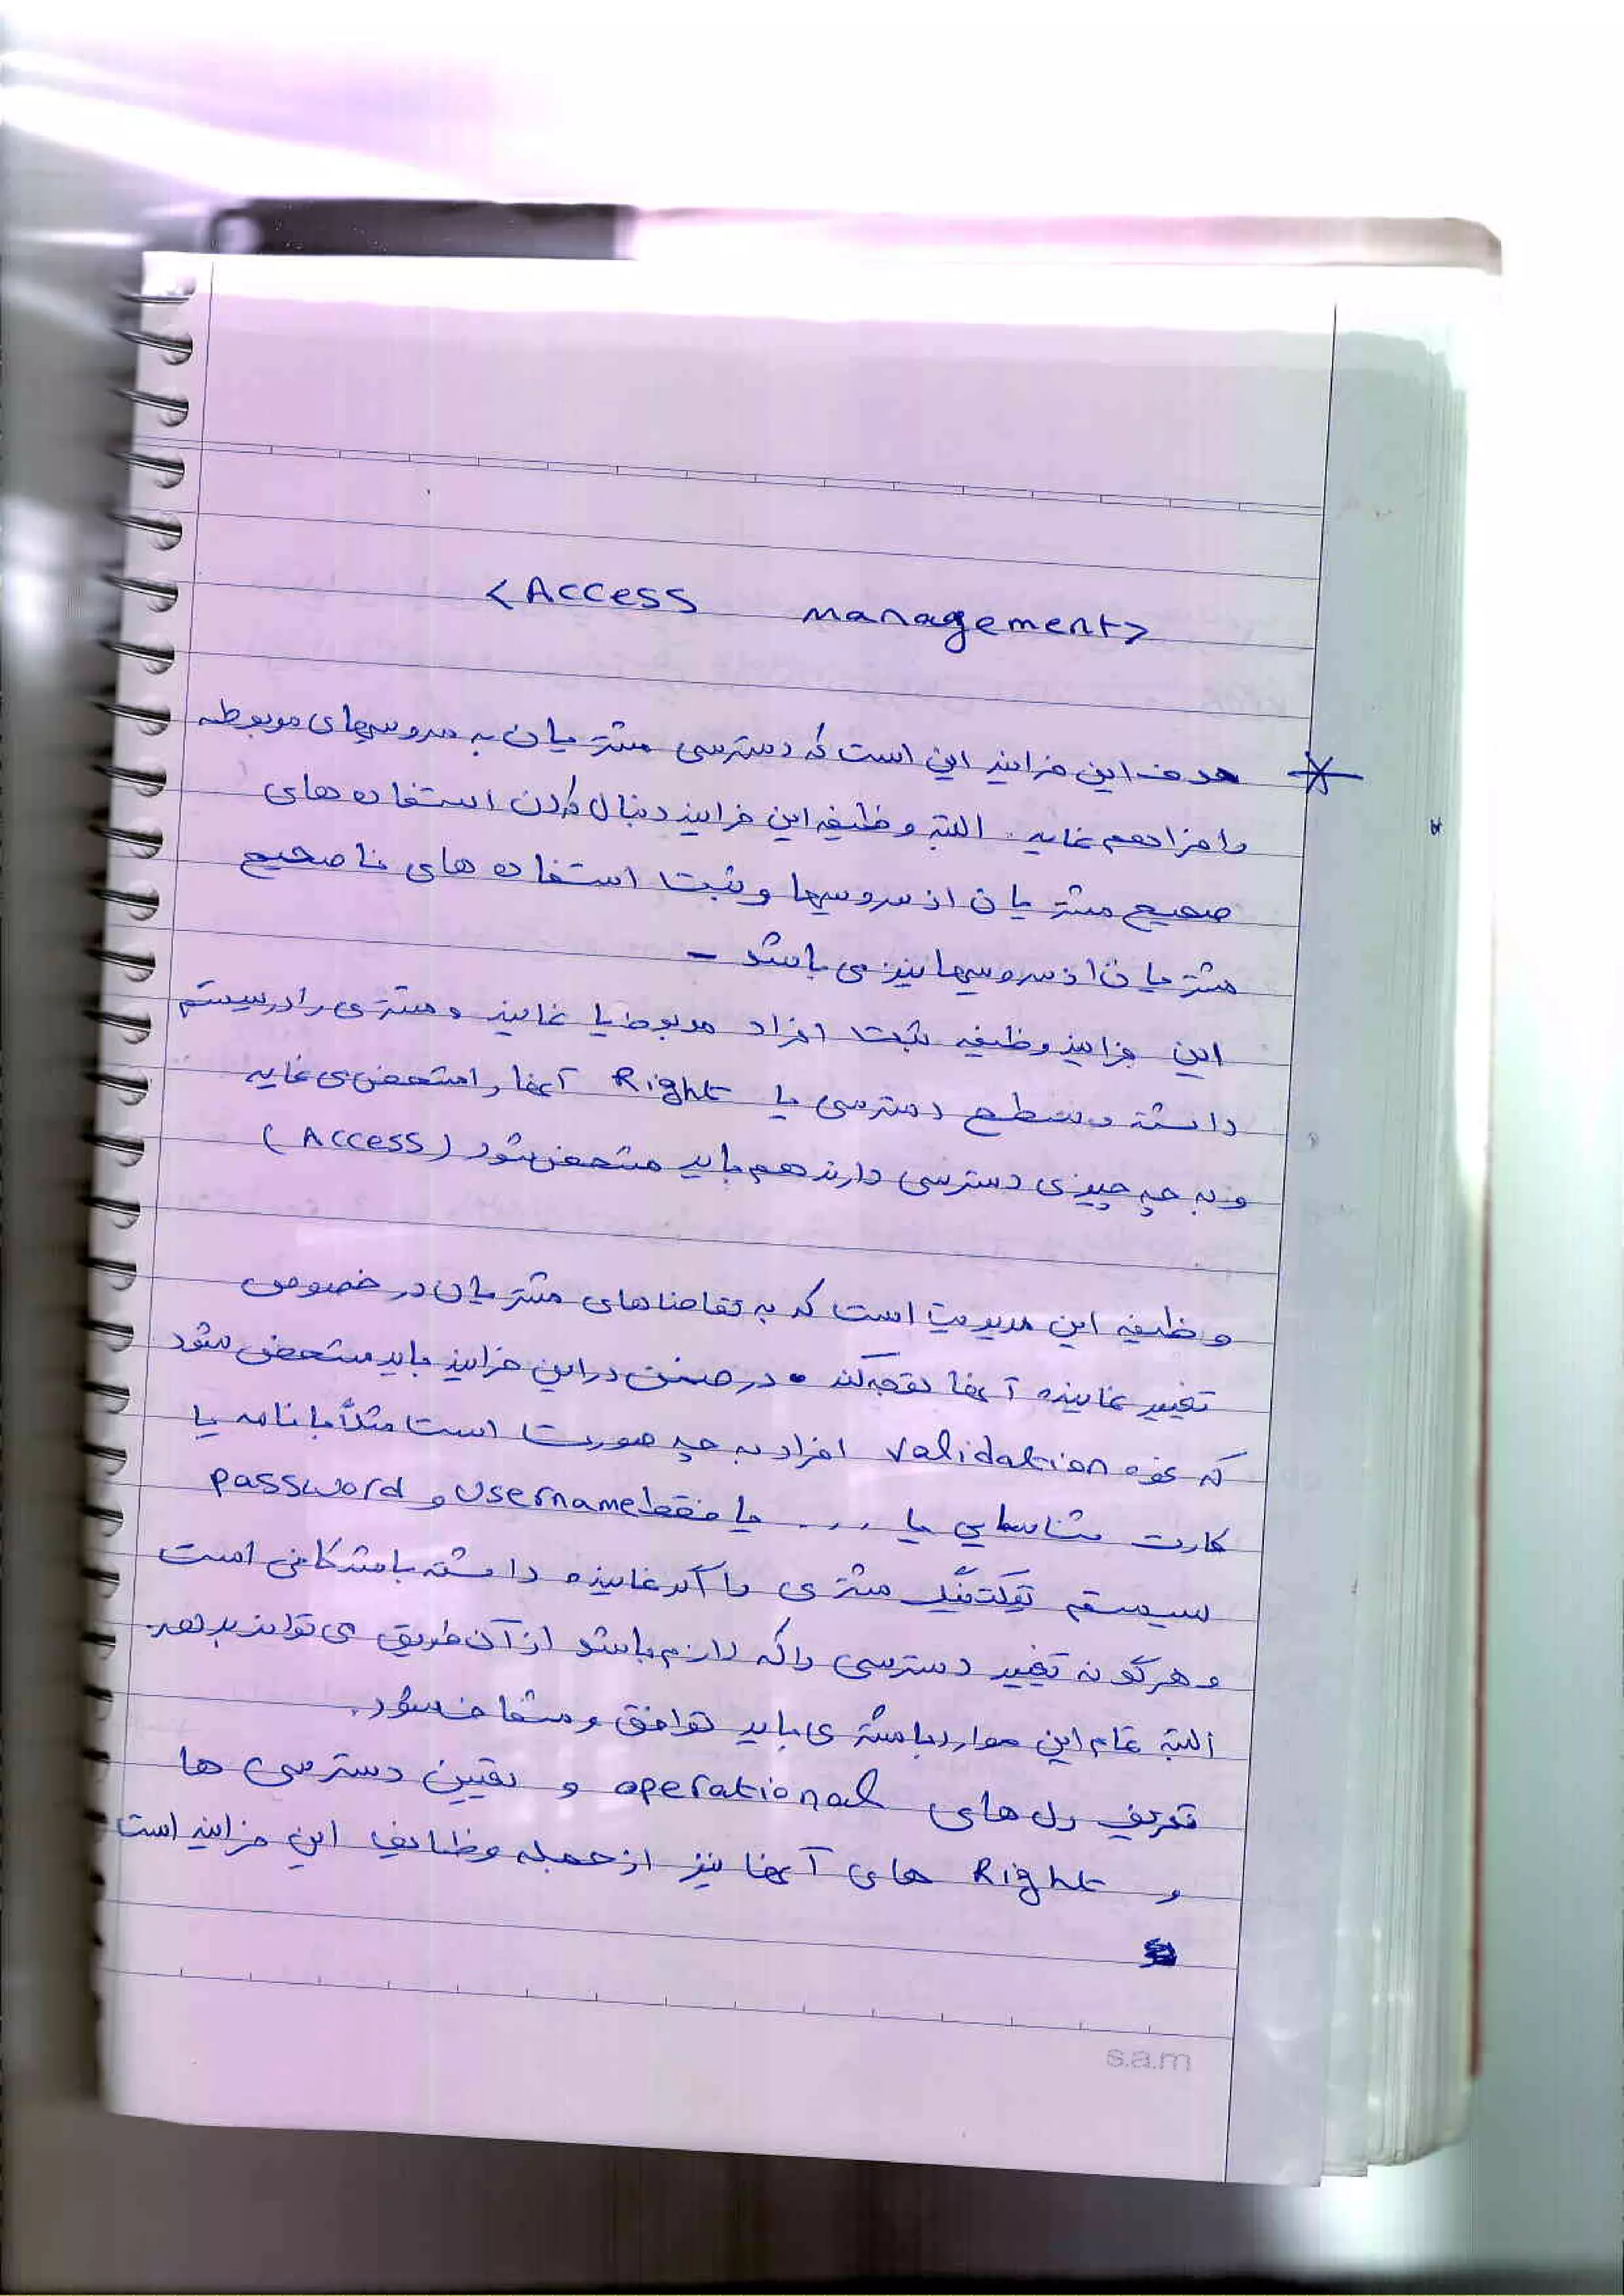 <Access management>
هدف این فرایند این است که دسترسی مشتریان به سرویسهای مربوطه
را فراهم نماید. البته وظیفه این فرایند دنبال کردن استفاده های
صحیح مشتریان از سرویسها و ثبت استفاده های ناصحیح
مشتریان از سرویسها نیز می باشد –
این فرایند وظیفه ثبت افراد مربوط یا نمایند و مشتری را در سیستم
داشته و سطح دسترسی یا Right آنها را مشخص می نماید
و به چه چیزی دسترسی دارند هم باید مشخص شود (Access)
وظیفه این مدیریت است که به تقاضاهای مشتریان در خصوص
تغییر نماینده آنها توجه کند • در ضمن در این فرایند باید مشخص شود
که نحوه validation افراد به چه صورت است مثلاً با نامه یا
کارت شناسایی یا ... یا فقط username و password
سیستم تیکتینگ مشتری را اگر نماینده داشته باشد کافی است
و هرگونه تغییر دسترسی را که لازم باشد از آن طریق می تواند بدهد.
البته تمام این موارد با مشتری باید توافق و شفاف شود.
تعریف رل های operational و تعیین دسترسی ها
و Right های آنها نیز از جمله وظایف این فرایند است
s.a.m